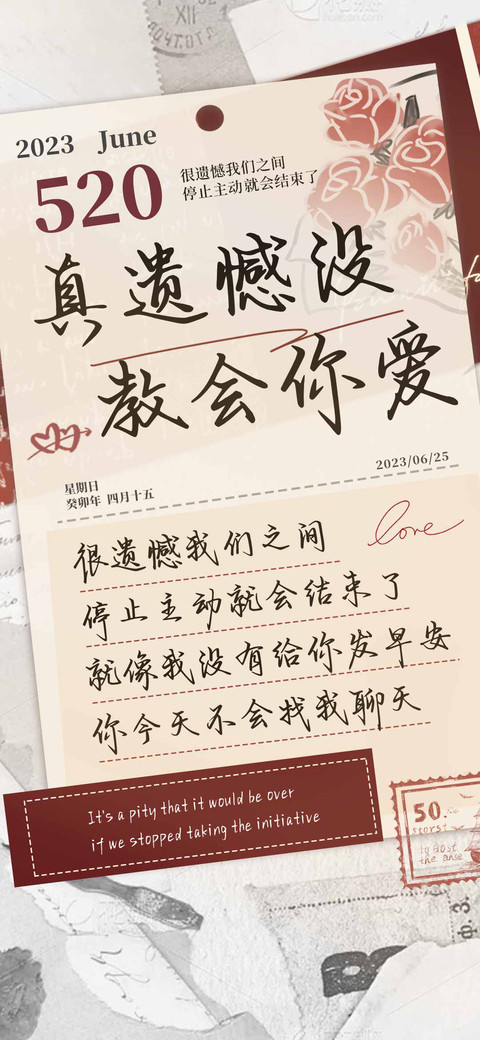 XII
2023 June
520
很遗憾我们之间
停止主动就会结束了
真遗憾没
教会你爱
2023/06/25
星期日
癸卯年 四月十五
love
很遗憾我们之间
停止主动就会结束了
就像我没有给你发早安
你今天不会找我聊天
It's a pity that it would be over
if we stopped taking the initiative
50.